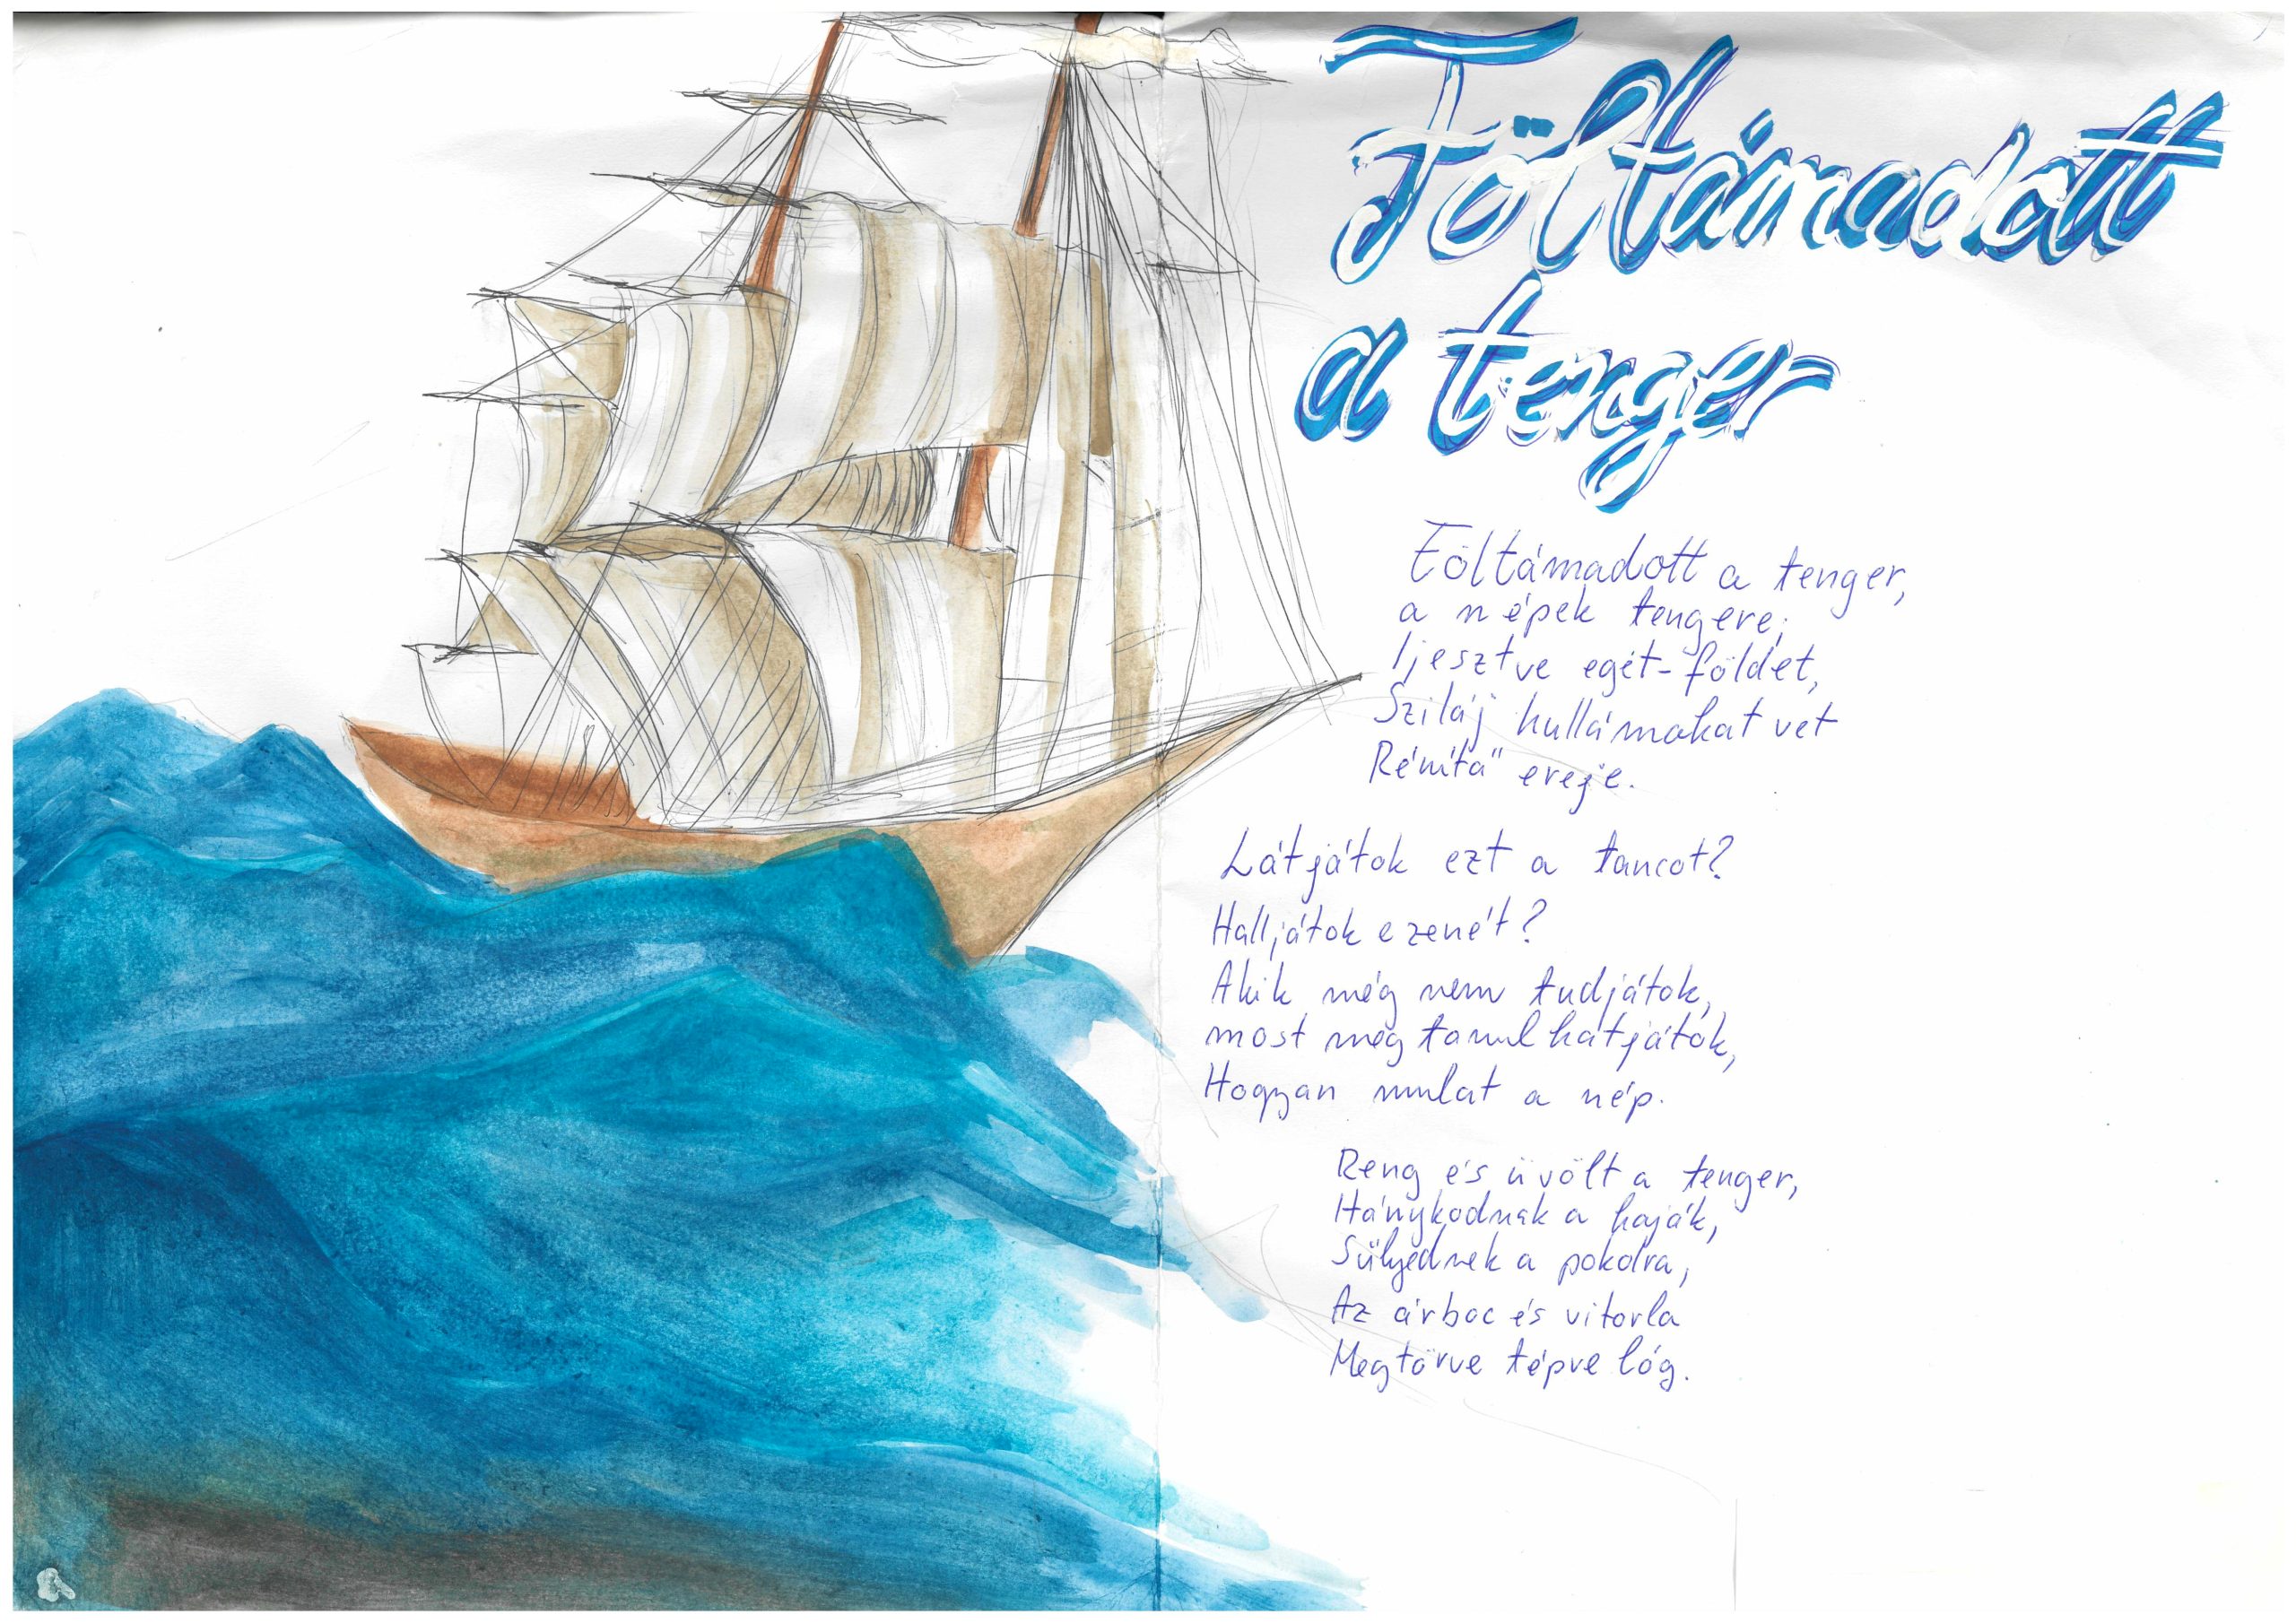 Föltámadott
a tenger
Föltámadott a tenger,
a népek tengere;
Ijesztve eget-földet,
Szilaj hullámokat vet
Rémítő ereje.
Látjátok ezt a táncot?
Halljátok e zenét?
Akik még nem tudjátok,
most megtanulhatjátok,
Hogyan mulat a nép.
Reng és üvölt a tenger,
Hánykódnak a hajók,
Sűlyednek a pokolra,
Az árboc és vitorla
Megtörve tépve lóg.